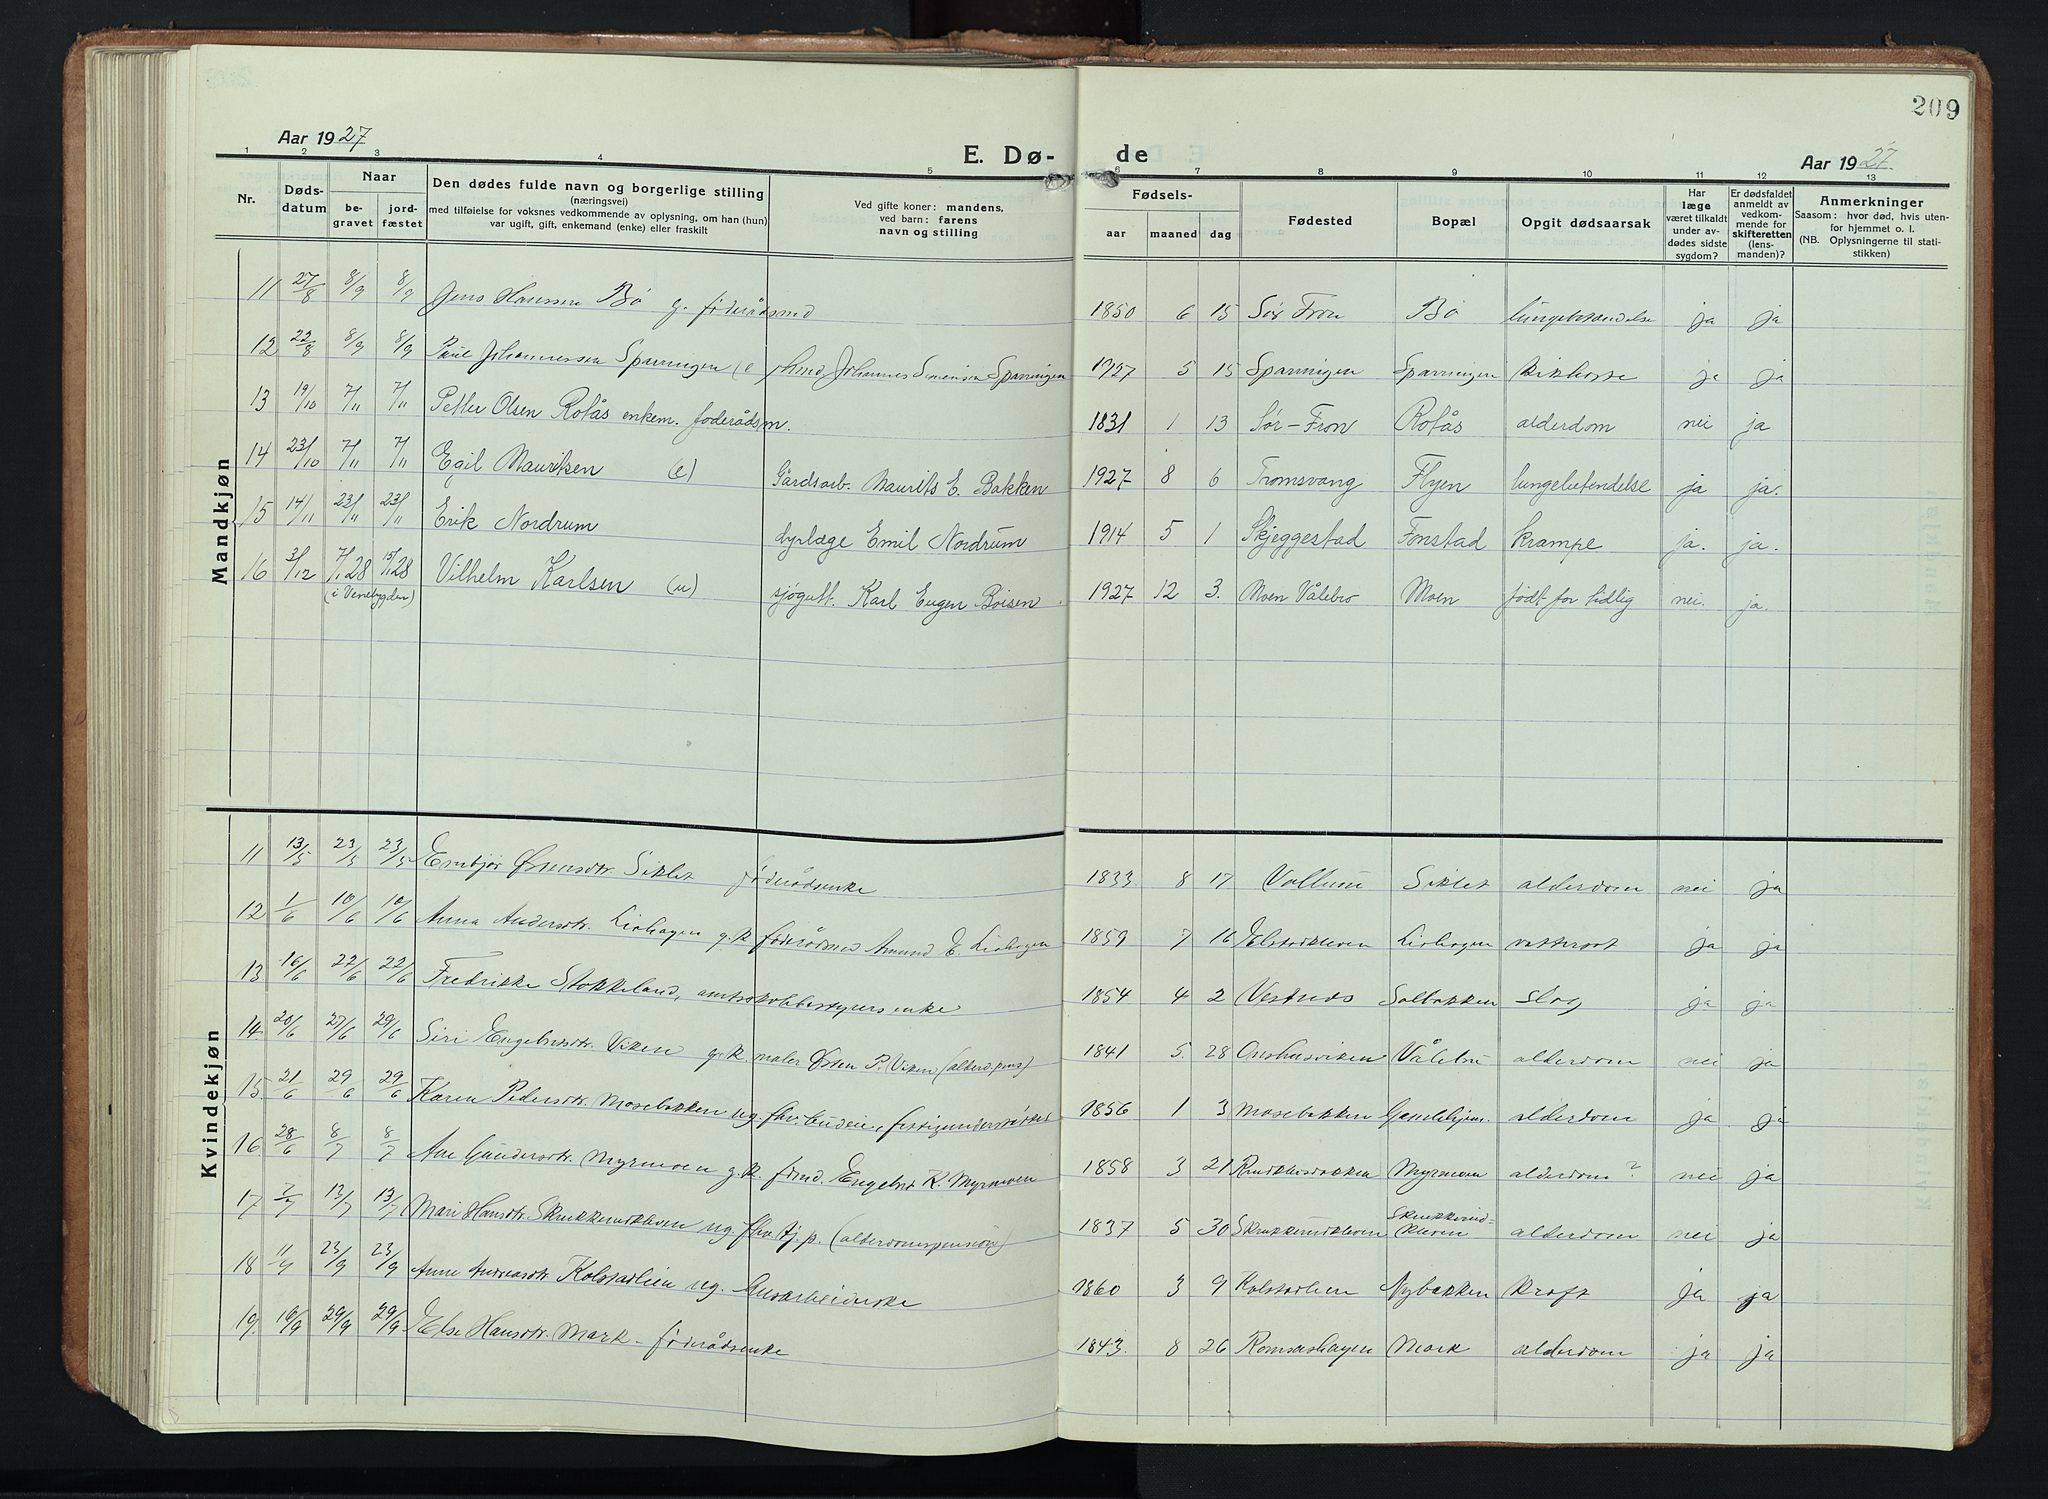 209
Aar 1927
E. Dø-
de
Aar 1927.
1 2 3 4 5 6 7 8 9 10 11 12 13
Nr.
Døds-
datum
Naar
be-
gravet
jord-
fæstet
Den dødes fulde navn og borgerlige stilling
(næringsvei)
med tilføielse for voksnes vedkommende av oplysning, om han (hun)
var ugift, gift, enkemand (enke) eller fraskilt
Ved gifte koner: mandens,
ved barn: farens
navn og stilling
Fødsels-
aar maaned dag
Fødested
Bopæl
Opgit dødsaarsak
Har
læge
været tilkaldt
under av-
dødes sidste
sygdom?
Er dødsfaldet
anmeldt av
vedkom-
mende for
skifteretten
(lens-
manden)?
Anmerkninger
Saasom: hvor død, hvis uten-
for hjemmet o. l.
(NB. Oplysningerne til stati-
stikken)
Mandkjøn
11 27/8 8/9 8/9 Jens Hanssen Bø g. føderådsmd 1850 6 15 Sør Fron Bø lungebetændelse ja ja
12 22/8 8/9 8/9 Paul Johannessen Sparningen (e) Johannes Simensen Sparningen 1927 5 15 Sparningen Sparningen kikhoste ja ja
13 19/10 7/11 7/11 Petter Olsen Rofås enkem. føderådsm. 1831 1 13 Sør-Fron Rofås alderdom nei ja
14 23/10 7/11 7/11 Egil Mauritsen (e) Gårdsarb. Maurits E. Bakken 1927 8 6 Tromsvang Flyen lungebetendelse ja ja.
15 14/11 23/11 23/11 Erik Nordrum dyrlæge Emil Nordrum 1914 5 1 Skjeggestad Fonstad krampe ja. ja.
16 3/12 7/1 28 15/1 28 Vilhelm Karlsen (u) sjøgutt. Karl Eugen Boisen. 1927 12 3. Moen Vålebro Moen født for tidlig nei. ja.
(i Venebygden)
Kvindekjøn
11 13/5 23/5 23/5 Embjør Østensdtr. Siklet føderådsenke 1833. 8 17 Vollum Siklet alderdom nei ja
12 1/6 10/6 10/6 Anna Andersdtr. Liehagen g. k. føderådsmd Amund E. Liehagen 1859 7 16 Elstadkleven Liehagen vattersot ja ja
13 16/6 22/6 22/6 Fredrikke Stokkeland, amtsskolebestyrers enke 1854 4 2 Vestnes Solbakken slag ja ja
14. 20/6 27/6 29/6 Siri Engebretsdtr. Viken g. k. maler Østen P. Viken (alderd. pens) 1841 5. 28 Onshusviken Vålebru alderdom nei ja
15 21/6 29/6 29/6 Karen Pedersdtr. Mosebakken ug. fhv. budeie, fattigunderstøttet 1856 1 3 Mosebakken Gamlehjem. alderdom ja ja
16 28/6 8/7 8/7 Ane Gundersdtr. Myrmoen g. k. fdmd. Engebret K. Myrmoen 1858 3 21 Myrmoen alderdom? nei ja
17 7/7 13/7 13/7 Mari Hansdtr. Skrukkerudkleven ug. fhv. tj. p. (alderdomspension) 1837 5 30 Skrukkerudkleven Skrukkerud-
kleven alderdom nei ja
18 11/9 23/9 23/9 Anne Andreasdtr Kolstadlien ug. Gaardarbeiderske 1860 3 9 Kolstadlien Nybakken kræft ja ja
19. 16/9 29/9 29/9 Else Hansdtr. Mark - føderådsenke 1843. 8 26 Romsåshagen Mark alderdom ja ja